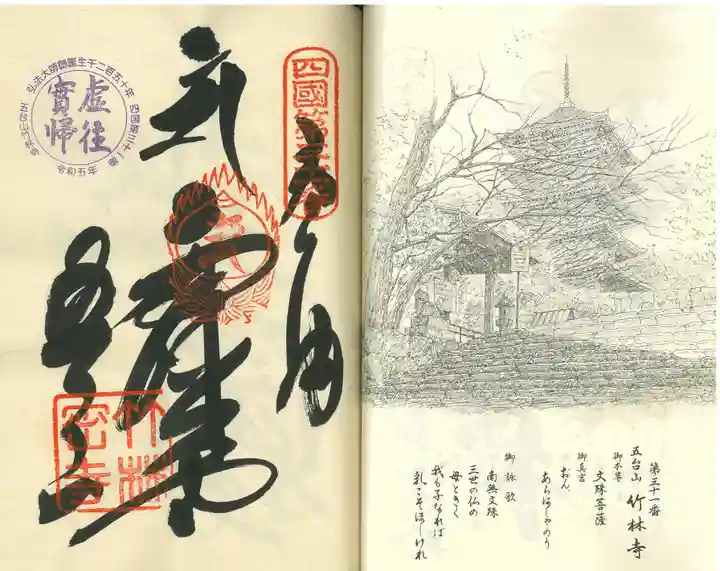 弘法大師御誕生千二百五十年
四国第三十一番
虚往
實帰
五台山竹林寺
令和五年
四國第三十一番
奉納
竹林
密寺
第三十一番
五台山 竹林寺
御本尊
文殊菩薩
御真言
おん、
あらはしゃのう
御詠歌
南無文殊
三世の仏の
母ときく
我も子なれば
乳こそほしけれ